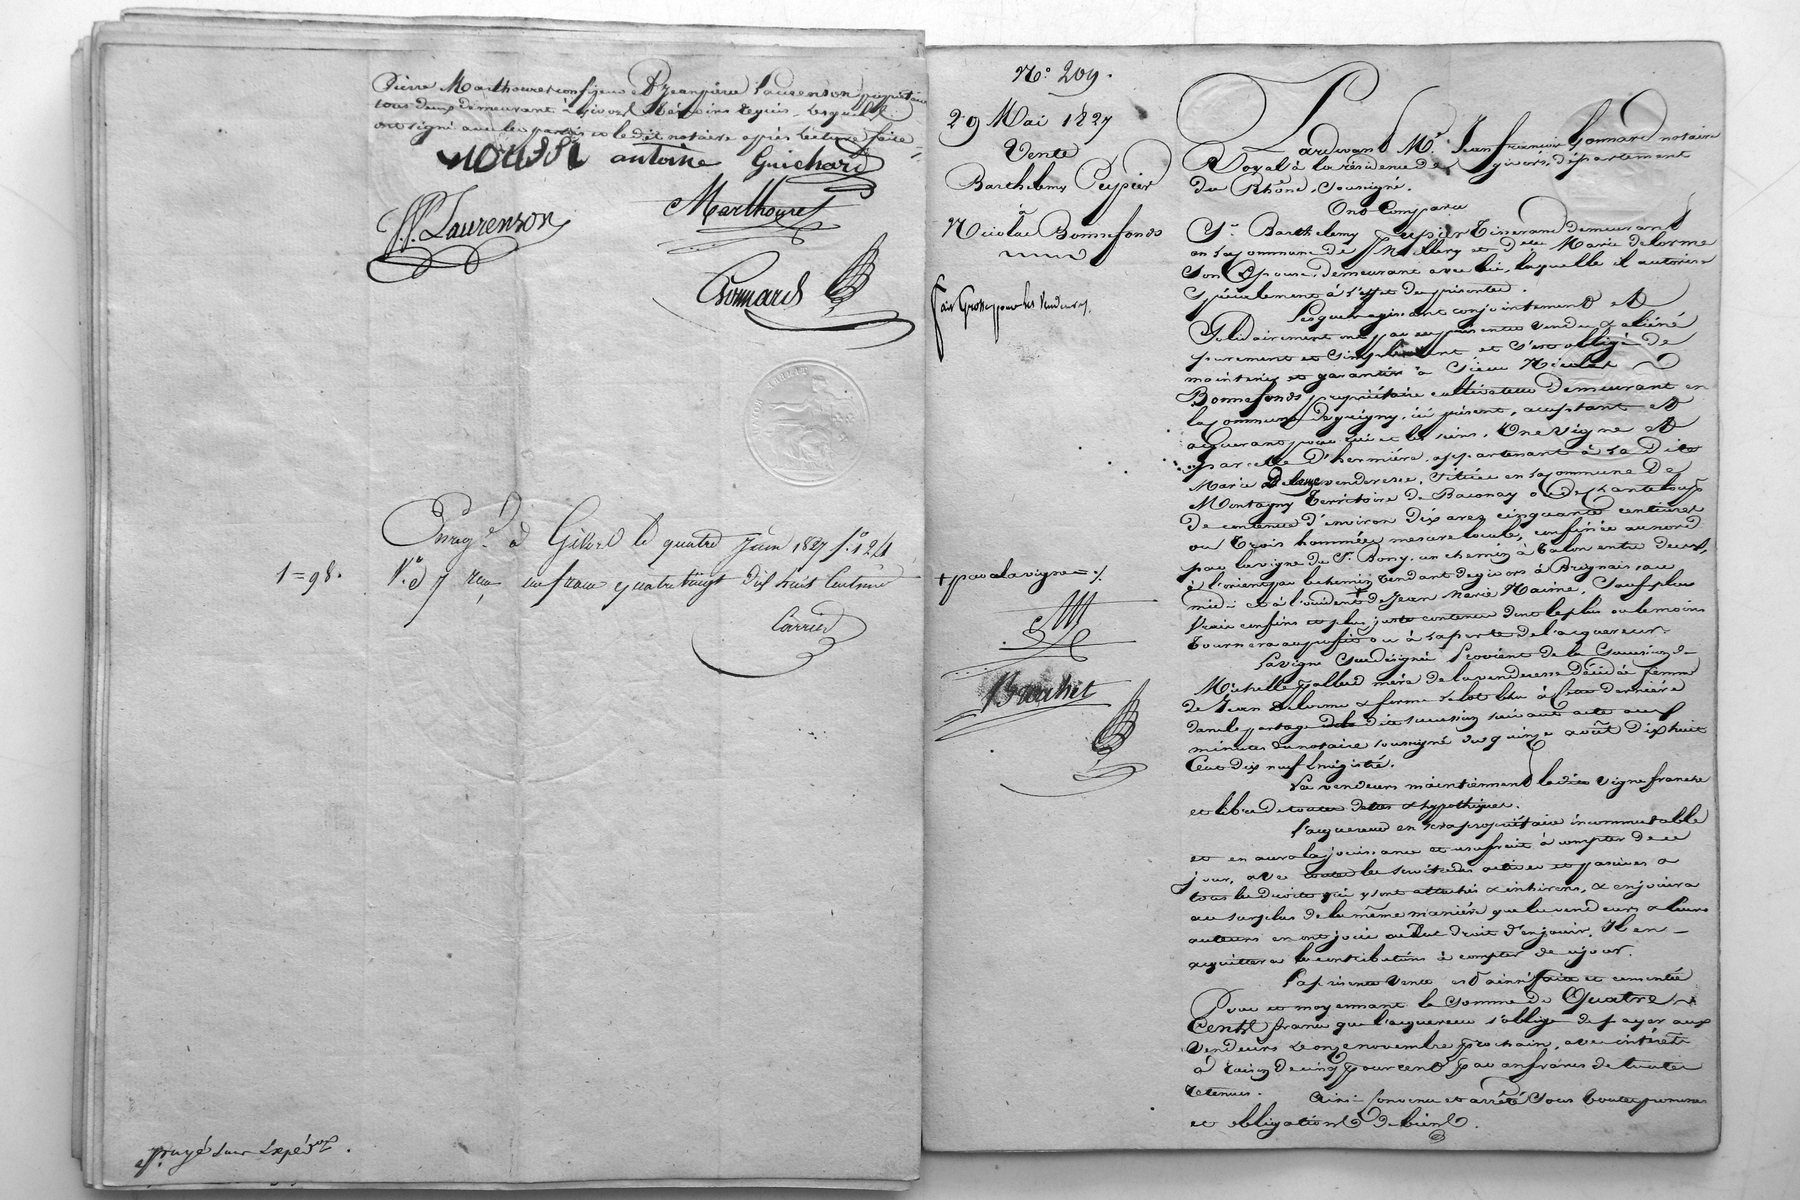 Pierre Marthouret confiseur et Jeanpierre Laurenson propriétaire
tous deux demeurant à givors témoins requis, lesquels
ont signé avec les parties et le dit notaire après lecture faite
antoine Guichard
J.P. Laurenson
Marthouret
Gonnard
Enreg.é à Givors le quatre Juin 1827 f.o 124
1=98.
reçu un franc quatre vingt dix huit centimes
Carrier
N.o 209.
29 Mai 1827
Vente
Barthelemy Peypier
à
Nicolas Bonnefonds
fait Grosse pour les Vendeurs.
+ par la vigne
Brachet
Pardevant M.e Jean françois Gonnard notaire
Royal à la résidence de givors, département
du Rhône, soussigné.
Ont Comparu
S.r Barthelemy Peypier Tisserand demeurant
en la commune de Millery et d.lle Marie delorme
son Epouse, demeurant avec lui, laquelle il autorise
spécialement à l'effet des présentes.
Lesquels agissant conjointement et
Solidairement ont par ces présentes vendu et aliéné
purement et simplement et s'est obligé de
maintenir et garantir à Sieur Nicolas
Bonnefonds propriétaire cultivateur demeurant en
la commune de grigny, ici présent, acceptant et
acquerant pour lui et les siens, Une vigne et
parcelle d'hermière, appartenant à la dite
Marie Delorme venderesse, située en la commune de
Montagny Territoire de Baconay ou de Chanteloup
de contenue d'environ dix ares cinquante centiares
ou trois hommées mesure locale, confinée au nord
par la vigne du S.r Bony, un chemin à talon entre deux,
à l'orient par le chemin tendant de givors à Brignais, au
midi et à l'occident de Jean Marie Naime, Sauf plus
vrais confins et plus juste contenue dont le plus ou le moins
tournera au profit ou à la perte de l'acquereur.
La vigne sus désignée provient de la Succession de
Michelle Pallud mère de la venderesse décédée femme
de Jean Delorme & forme le lot échu à cette dernière
dans le partage de la dite succession suivant acte aux
minutes du notaire soussigné du quinze août dix huit
Cent dix neuf Enregistré.
Les vendeurs maintiennent la dite vigne franche
et libre de toutes dettes & hypothèques.
L'acquereur en sera propriétaire incommutable
et en aura la jouissance et usufruit à compter de ce
jour, avec toutes les servitudes actives et passives &
tous les droits qui y sont attachés & inhérens, & en jouira
au surplus de la même manière que les vendeurs & leurs
auteurs en ont joui ou eu droit d'en jouir. Il en
acquittera les contributions à compter de ce jour.
La présente vente est ainsi faite et consentie
Pour et moyennant la somme de Quatre
Cents francs que l'acquereur s'oblige de payer aux
Vendeurs le onze novembre prochain, avec intérêts
à raison de cinq pour cent par an francs de toutes
retenues. Ainsi convenu et arrêté sous toutes promesses
et obligations de biens.